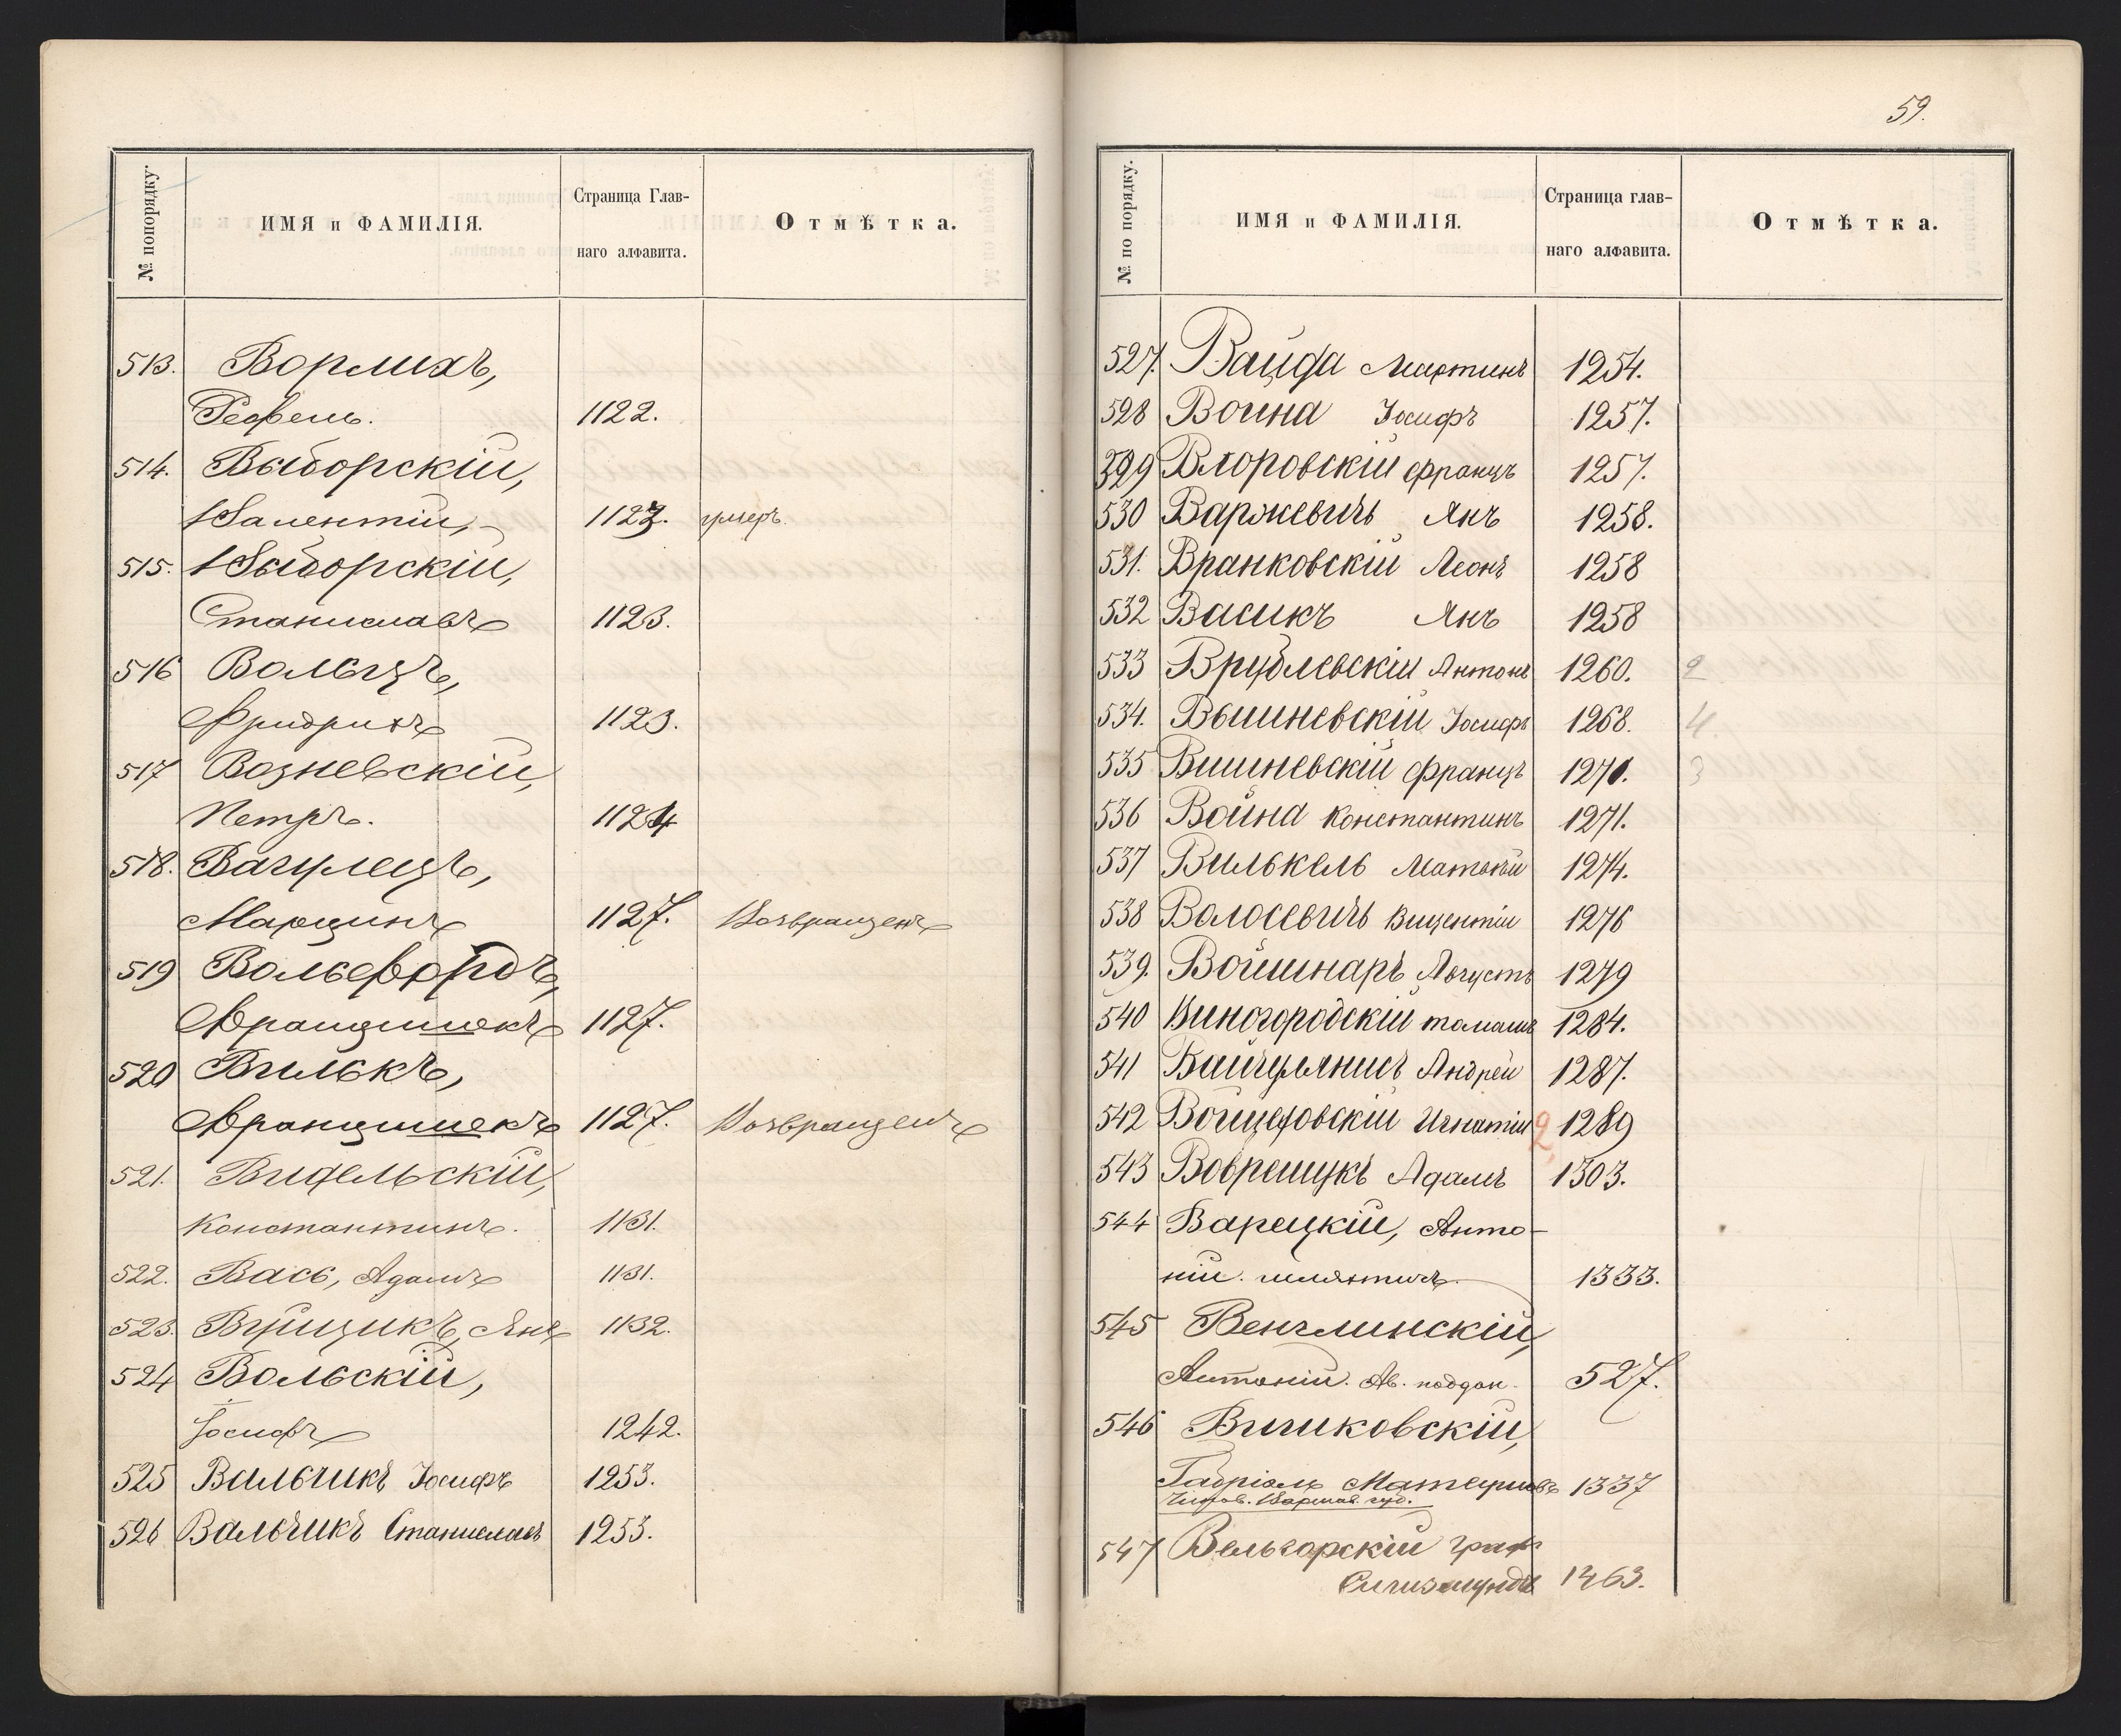 № попорядку.
ИМЯ и ФАМИЛІЯ.
Страница Глав-
наго алфавита.
Отмѣтка.
513. Ворлихъ,
Рефель. 1122.
514. Выборскій,
Валентій, 1123. умеръ.
515. Выборскій,
Станиславъ 1123.
516 Вольцъ,
Фридрихъ 1123.
517 Возневскій,
Петръ. 1124
518. Вагулецъ,
Марцинъ 1127. Возвращенъ
519 Вольсфордъ,
Францишекъ 1127.
520 Вилькъ,
Францишекъ 1127. Возвращенъ
521. Видельскій,
Константинъ. 1131.
522. Вась, Адамъ 1131.
523. Вуйцикъ, Янъ 1132.
524 Вольскій,
Іосифъ 1242.
525 Вальчикъ Іосифъ 1253.
526 Вальчикъ Станиславъ 1253.
59.
№ по порядку.
ИМЯ и ФАМИЛІЯ.
Страница глав-
наго алфавита.
Отмѣтка.
527. Вайда Мартинъ 1254.
528 Воина Іосифъ 1257.
Влоровскій Францъ 1257.
530 Варжевичъ Янъ 1258.
531. Вранковскій Леонъ 1258
532 Васикъ Янъ 1258
533 Врублевскій Антонъ 1260. 2
534. Вышневскій Іосифъ 1268. 4.
535 Вишневскій Францъ 1271. 3
536 Война Константинъ 1271.
537 Вилькель Матвѣй 1274.
538 Волосевичъ Вицентій 1276
539. Войшнаръ Августъ 1279
540 Виногородскій томашъ 1284.
541 Андрей 1287.
542 Войцеховскій Игнатій 2, 1289
543 Воврещукъ Адамъ 1303.
544 Варецкій, Анто-
ній. шляхтичъ. 1333.
545 Венглинскій,
Антоній. Ав. поддан. 527.
546 Вичиковскій,
Габріэль 1337
Варшав. губ.
547 Вельгорскій граф
Сигизмундъ 1463.